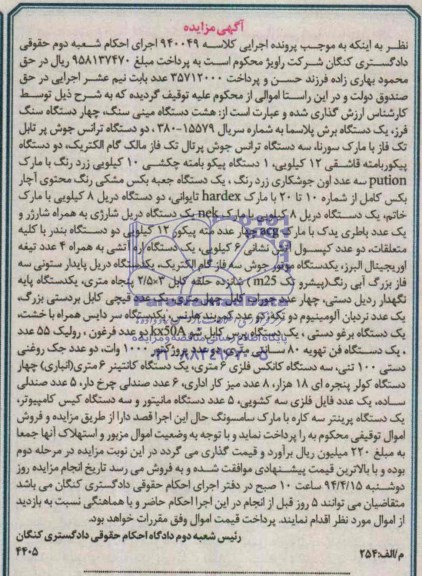 آگهی مزایده
نظر به اینکه به موجب پرونده اجرایی کلاسه ۹۴۰۰۴۹ اجرای احکام شعبه دوم حقوقی
دادگستری کنگان شرکت راویژ محکوم است به پرداخت مبلغ ۹۵۸۱۳۷۴۷۰ ریال در حق
محمود بهاری زاده فرزند حسن و پرداخت ۳۵۷۱۲۰۰۰ عدد بابت نیم عشر اجرایی در حق
صندوق دولت و در این راستا اموالی از محکوم علیه توقیف گردیده که به شرح ذیل توسط
کارشناس ارزش گذاری شده و عبارت است از: هشت دستگاه مینی سنگ، چهار دستگاه سنگ
فرز، یک دستگاه برش پلاسما به شماره سریال ۱۵۵۷۹-۳۸۰، دو دستگاه ترانس جوش پر تابل
تک فاز با مارک سورنا، سه دستگاه ترانس جوش پرتال تک فاز مالک گام الکتریک، دو دستگاه
پیکوربامته قاشقی ۱۲ کیلویی، ۱ دستگاه پیکو بامته چکشی ۱۰ کیلویی زرد رنگ با مارک
pution سه عدد اون جوشکاری زرد رنگ ، یک دستگاه جعبه بکس مشکی رنگ محتوی آچار
بکس کامل از شماره ۱۰ تا ۲۰ با مارک hardex تایوانی، دو دستگاه دریل ۸ کیلویی با مارک
خاتم، یک دستگاه دریل ۸ کیلویی با مارک nek یک دستگاه دریل شارژی به همراه شارژر و
یک عدد باطری یدک با مارک acg چهار عدد مته پیکور ۱۲ کیلویی دو دستگاه بندر با کلیه
متعلقات، دو عدد کپسول آتش نشانی ۶ کیلویی، یک دستگاه اره آتشی به همراه ۴ عدد تیغه
اوریجینال البرز، یکدستگاه موتور جوش سه فاز گام الکتریک، یکدستگاه دریل پایدار ستونی سه
فاز بزرگ آبی رنگ(پیشرو تک m25) شانزده حلقه کابل ۲/۵×۳ پنجاه متری، یکدستگاه پایه
نگهدار ردیل دستی، چهار عدد چراغ کابل چهل متری، یک عدد قیچی کابل بردستی بزرگ،
یک عدد نردبان آلومینیوم دو تکه، دو عدد کمربند هارنس، یکدستگاه سر دایس همراه با خشت،
یک دستگاه پرغو دستی ، یک دستگاه پرس کابل شو kx50A دو عدد فرغون ، رولیک ۵۵ عدد
، یک دستگاه فن تهویه ۸۰ سانتی متری، دو عدد پروژکتور ۱۰۰۰ وات، دو عدد جک روغنی
دستی ۱۰۰ تنی، سه دستگاه کانکس فلزی ۶ متری، یک دستگاه کانتینر ۶ متری(انباری) چهار
دستگاه کولر پنجره ای ۱۸ هزار، ۸ عدد میز کار اداری، ۶ عدد صندلی چرخ دار، ۵ عدد صندلی
ساده، یک عدد فایل فلزی سه کشویی، ۵ عدد دستگاه مانیتور و سه دستگاه کیس کامپیوتر،
یک دستگاه پرینتر سه کاره با مارک سامسونگ حال این اجرا قصد دارا از طریق مزایده و فروش
اموال توقیفی محکوم به را پرداخت نماید و با توجه به وضعیت اموال مزبور و استهلاک آنها جمعا
به مبلغ ۲۲۰ میلیون ریال برآورد و قیمت گذاری می گردد در این نوبت مزایده در مرحله دوم
بوده و با بالاترین قیمت پیشنهادی موافقت شده و به فروش می رسد تاریخ انجام مزایده روز
دوشنبه ۹۴/۴/۱۵ ساعت ۱۰ صبح در دفتر اجرای احکام حقوقی دادگستری کنگان می باشد
متقاضیان می توانند ۵ روز قبل از انجام در این اجرا احکام حاضر و با هماهنگی نسبت به بازدید
از اموال مورد نظر اقدام نمایند. پرداخت قیمت اموال وفق مقررات خواهد بود.
رئیس شعبه دوم دادگاه احکام حقوقی دادگستری کنگان
م/الف:۲۵۴ ۴۴۰۵